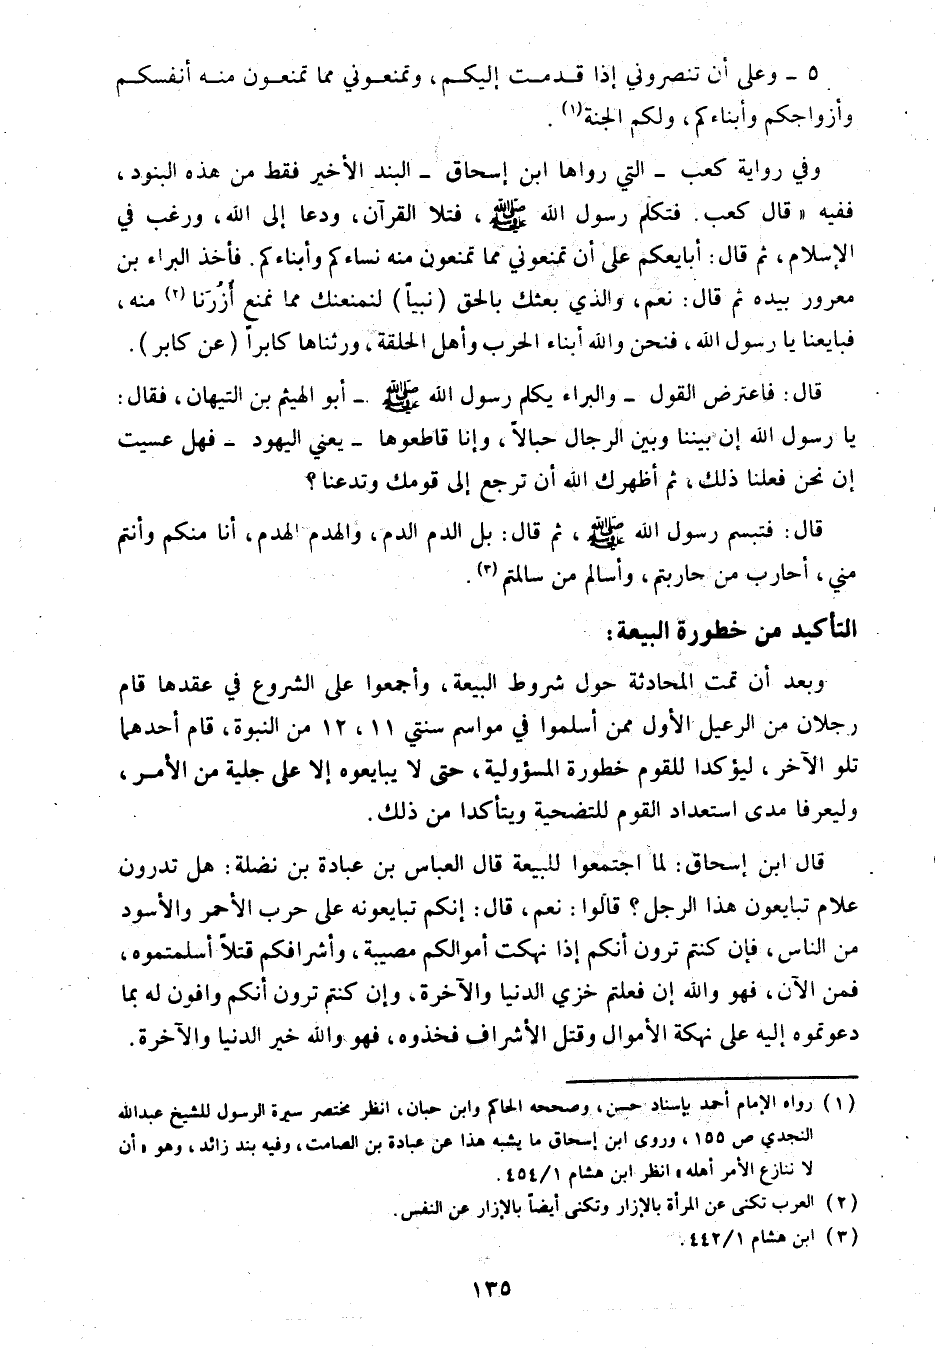 ٥ ـ وعلى أن تنصروني إذا قدمت إليكم، وتمنعوني مما تمنعون منه أنفسكم
وأزواجكم وأبناءكم، ولكم الجنة(١).
وفي رواية كعب ـ التي رواها ابن إسحاق ـ البند الأخير فقط من هذه البنود،
ففيه «قال كعب. فتكلم رسول الله ﷺ، فتلا القرآن، ودعا إلى الله، ورغب في
الإسلام، ثم قال: أبايعكم على أن تمنعوني مما تمنعون منه نساءكم وأبناءكم. فأخذ البراء بن
معرور بيده ثم قال: نعم، والذي بعثك بالحق (نبياً) لنمنعنك مما نمنع أُزُرَنا(٢) منه،
فبايعنا يا رسول الله، فنحن والله أبناء الحرب وأهل الحلقة، ورثناها كابراً (عن كابر).
قال: فاعترض القول ـ والبراء يكلم رسول الله ﷺ ـ أبو الهيثم بن التيهان، فقال:
يا رسول الله إن بيننا وبين الرجال حبالاً، وإنا قاطعوها ـ يعني اليهود ـ فهل عسيت
إن نحن فعلنا ذلك، ثم أظهرك الله أن ترجع إلى قومك وتدعنا؟
قال: فتبسم رسول الله ﷺ، ثم قال: بل الدم الدم، والهدم الهدم، أنا منكم وأنتم
مني، أحارب من حاربتم، وأسالم من سالمتم(٣).
التأكيد من خطورة البيعة:
وبعد أن تمت المحادثة حول شروط البيعة، وأجمعوا على الشروع في عقدها قام
رجلان من الرعيل الأول ممن أسلموا في مواسم سنتي ١١، ١٢ من النبوة، قام أحدهما
تلو الآخر، ليؤكدا للقوم خطورة المسؤولية، حتى لا يبايعوه إلا على جلية من الأمر،
وليعرفا مدى استعداد القوم للتضحية ويتأكدا من ذلك.
قال ابن إسحاق: لما اجتمعوا للبيعة قال العباس بن عبادة بن نضلة: هل تدرون
علام تبايعون هذا الرجل؟ قالوا: نعم، قال: إنكم تبايعونه على حرب الأحمر والأسود
من الناس، فإن كنتم ترون أنكم إذا نهكت أموالكم مصيبة، وأشرافكم قتلاً أسلمتموه،
فمن الآن، فهو والله إن فعلتم خزي الدنيا والآخرة، وإن كنتم ترون أنكم وافون له بما
دعوتموه إليه على نهكة الأموال وقتل الأشراف فخذوه، فهو والله خير الدنيا والآخرة.
(١) رواه الإمام أحمد بإسناد حسن، وصححه الحاكم وابن حبان، انظر مختصر سيرة الرسول للشيخ عبدالله
النجدي ص ١٥٥، وروى ابن إسحاق ما يشبه هذا عن عبادة بن الصامت، وفيه بند زائد، وهو «أن
لا ننازع الأمر أهله» انظر ابن هشام ٤٥٤/١.
(٢) العرب تكنى عن المرأة بالإزار وتكنى أيضاً بالإزار عن النفس.
(٣) ابن هشام ٤٤٢/١.
١٣٥